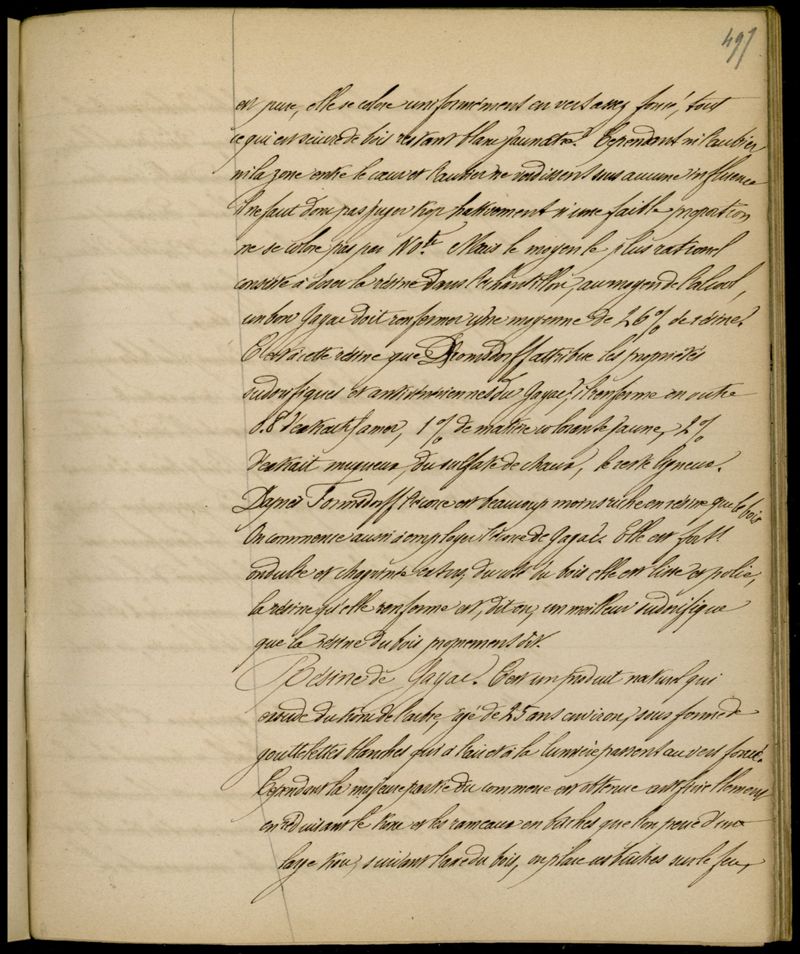 497
est pure, elle se colore uniformément en vert assez foncé, tout
ce qui est sciure de bois restant blanc jaunatre. Cependant ni l'aubier,
ni la zone entre le cœur et l'aubier ne verdissent sous aucune influence
il ne faut donc pas juger trop hativement si une faible proportion
ne se colore pas par Mais le moyen le plus rationel
consiste à doser la résine dans l'échantillon, au moyen de l'alcool,
un bon Gayac doit renfermer une moyenne de 26% de résine.
C'est à cette résine que Tromsdorff attribue les propriétés
sudorifiques et antivénériennes du Gayac, il renferme en outre
0.8 d'extrait amer, 1% de matière colorante jaune, 2%
d'extrait muqueux, du sulfate de chaux, le reste ligneux.
D'après Tromsdorff l'écorce est beaucoup moins riche en résine que le bois
On commence aussi à employer l'écorce de Gayac. Elle est
ondulée et du côté du bois elle est lisse et polie,
la résine qu'elle renferme est, dit on, un meilleur sudorifique
que la résine du bois proprement dit.
Résine de Gayac. C'est un produit naturel qui
exsude du tronc de l'arbre, agé de 25 ans environ, sous forme de
gouttelettes blanches qui à l'air et à la lumière passent au vert foncé.
Cependant la majeure partie du commerce est obtenue artificiellement
en réduisant le tronc et les rameaux en buches que l'on perce d'un
large trou, suivant l'axe du bois, on place ces buches sur le feu,